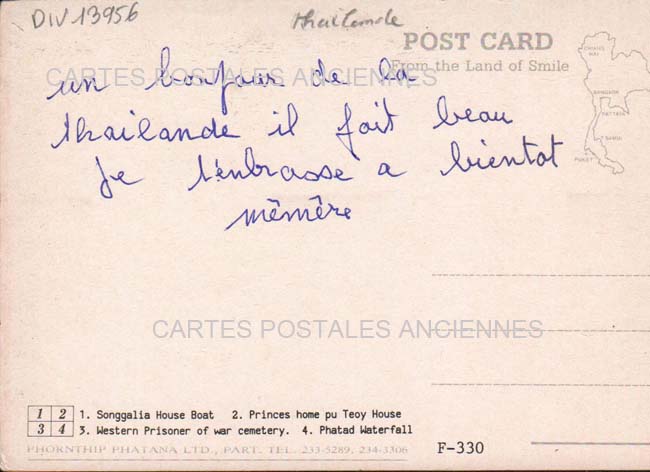 DIV 13956
thailande
POST CARD
From the Land of Smile
CARTES POSTALES ANCIENNES
un bonjour de la
thailande il fait beau
je t'enbrasse a bientot
mémère
CHIANG MAI
BANGKOK
PATTAYA
SAMUI
PUKET
CARTES POSTALES ANCIENNES
1 2
3 4
1. Songgalia House Boat 2. Princes home pu Teoy House
3. Western Prisoner of war cemetery. 4. Phatad Waterfall
PHORNTHIP PHATANA LTD., PART. TEL. 233-5289, 234-3306
F-330